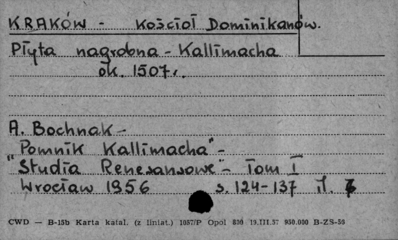 KRAKÓW - Kościoł Dominikanów.
Płyta nagrobna - Kallimacha
ok. 1507r.
A. Bochnak -
"Pomnik Kallimacha" -
"Studia Renesansowe" - Tom I
Wrocław 1956 s. 124-137 il. 7
CWD — B-15b Karta katal. (z liniat.) 1057/P Opol 19.III.57 950.000 B-ZS-50